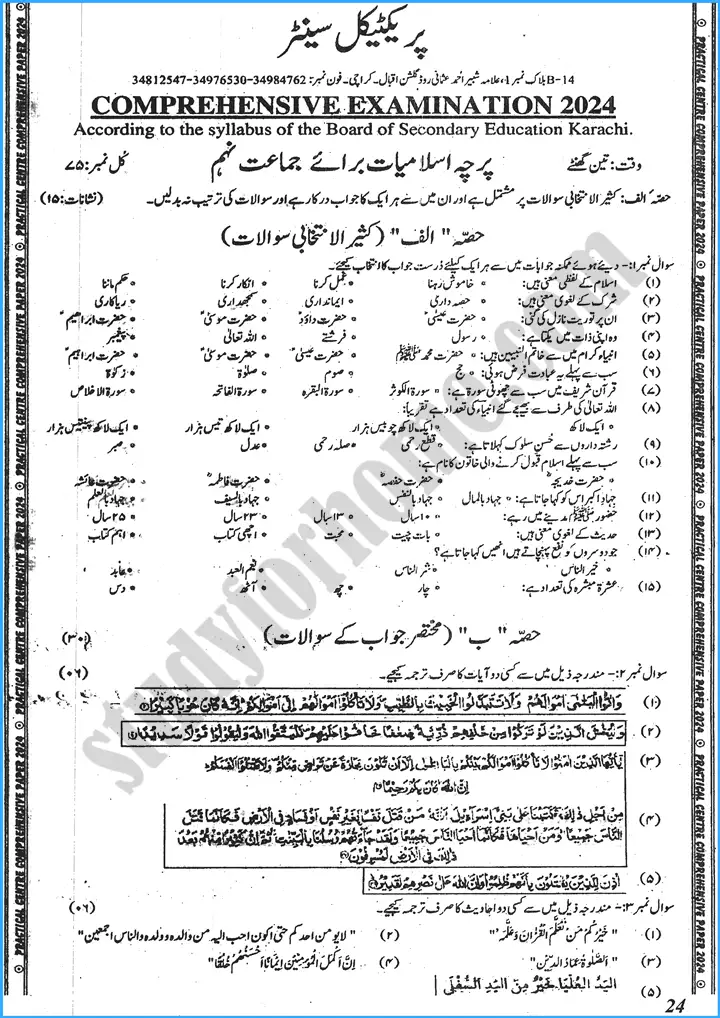 پریکٹیکل سینٹر
B-14 بلاک نمبر 1، علامہ شبیر احمد عثمانی روڈ گلشن اقبال۔ کراچی۔ فون نمبر: 34984762-34976530-34812547
COMPREHENSIVE EXAMINATION 2024
According to the syllabus of the Board of Secondary Education Karachi.
وقت: تین گھنٹے پرچہ اسلامیات برائے جماعت نہم کل نمبر: ۷۵
حصہ الف: کثیر الانتخابی سوالات پر مشتمل ہے اور ان میں سے ہر ایک کا جواب درکار ہے اور سوالات کی ترتیب نہ بدلیں۔ (نشانات: ۱۵)
حصہ " الف" (کثیر الانتخابی سوالات)
سوال نمبر ۱:- دیئے ہوئے ممکنہ جوابات میں سے ہر ایک کیلئے درست جواب کا انتخاب کیجئے۔
(۱) اسلام کے لفظی معنی ہیں: * خاموش رہنا * عمل کرنا * انکار کرنا * حکم ماننا
(۲) شرک کے لغوی معنی ہیں: * حصہ داری * ایمانداری * سمجھداری * ریاکاری
(۳) ان پر توریت نازل کی گئی: * حضرت عیسیٰ * حضرت داؤد * حضرت موسیٰ * حضرت ابراھیم
(۴) وہ اپنی ذات میں یکتا ہے: * رسول * فرشتے * اللہ تعالیٰ * پیغمبر
(۵) انبیاء کرام میں سے خاتم النبیین ہیں: * حضرت محمد ﷺ * حضرت عیسیٰ * حضرت موسیٰ * حضرت ابراہیم
(۶) سب سے پہلے یہ عبادت فرض ہوئی: * حج * صوم * صلوٰۃ * زکوٰۃ
(۷) قرآن شریف میں سب سے چھوٹی سورۃ ہے: * سورۃ الکوثر * سورۃ البقرہ * سورۃ الفاتحہ * سورۃ الاخلاص
(۸) اللہ تعالیٰ کی طرف سے بھیجے گئے انبیاء کی تعداد ہے تقریباً:
* ایک لاکھ * ایک لاکھ چوبیس ہزار * ایک لاکھ تیس ہزار * ایک لاکھ پینتیس ہزار
(۹) رشتہ داروں سے حُسنِ سلوک کہلاتا ہے: * قطع رحمی * صلہ رحمی * عدل * صبر
(۱۰) سب سے پہلے اسلام قبول کرنے والی خاتون کا نام ہے:
* حضرت خدیجہ * حضرت حفصہ * حضرت فاطمہ * حضرت عائشہ
(۱۱) جہادِ اکبر اس کو کہا جاتا ہے: * جہاد بالمال * جہاد بالنفس * جہاد بالسیف * جہاد بالعلم
(۱۲) حضور ﷺ مدینے میں رہے: * ۱۰ سال * ۱۳ سال * ۲۳ سال * ۲۵ سال
(۱۳) حدیث کے لغوی معنی ہیں: * بات چیت * محبت * اچھی کتاب * اہم کتاب
(۱۴) جو دوسروں کو نفع پہنچاتے ہیں انھیں کہا جاتا ہے؟
* خیر الناس * شر الناس * * عابد
(۱۵) عشرۃ مبشرہ کی تعداد ہے: * چار * چھ * آٹھ * دس
حصہ " ب" (مختصر جواب کے سوالات) (۳۰)
سوال نمبر ۲:- مندرجہ ذیل میں سے کسی دو آیات کا صرف ترجمہ کیجیے۔ (۰۶)
(۱) وَاٰتُوا الْیَتٰمٰۤى اَمْوَالَهُمْ وَلَا تَتَبَدَّلُوا الْخَبِیْثَ بِالطَّیِّبِ وَلَا تَاْكُلُوْۤا اَمْوَالَهُمْ اِلٰۤى اَمْوَالِكُمْ اِنَّهٗ كَانَ حُوْبًا كَبِیْرًا
(۲) وَلْیَخْشَ الَّذِیْنَ لَوْ تَرَكُوْا مِنْ خَلْفِهِمْ ذُرِّیَّةً ضِعٰفًا خَافُوْا عَلَیْهِمْ فَلْیَتَّقُوا اللّٰهَ وَلْیَقُوْلُوْا قَوْلًا سَدِیْدًا
(۳) یٰۤاَیُّهَا الَّذِیْنَ اٰمَنُوْا لَا تَاْكُلُوْۤا اَمْوَالَكُمْ بَیْنَكُمْ بِالْبَاطِلِ اِلَّاۤ اَنْ تَكُوْنَ تِجَارَةً عَنْ تَرَاضٍ مِّنْكُمْ وَلَا تَقْتُلُوْۤا اَنْفُسَكُمْ
اِنَّ اللّٰهَ كَانَ بِكُمْ رَحِیْمًا
(۴) مِنْ اَجْلِ ذٰلِكَ كَتَبْنَا عَلٰى بَنِیْۤ اِسْرَآءِیْلَ اَنَّهٗ مَنْ قَتَلَ نَفْسًۢا بِغَیْرِ نَفْسٍ اَوْ فَسَادٍ فِی الْاَرْضِ فَكَاَنَّمَا قَتَلَ
النَّاسَ جَمِیْعًا وَمَنْ اَحْیَاهَا فَكَاَنَّمَاۤ اَحْیَا النَّاسَ جَمِیْعًا وَلَقَدْ جَآءَتْهُمْ رُسُلُنَا بِالْبَیِّنٰتِ ثُمَّ اِنَّ كَثِیْرًا مِّنْهُمْ بَعْدَ
ذٰلِكَ فِی الْاَرْضِ لَمُسْرِفُوْنَ
(۵) اُذِنَ لِلَّذِیْنَ یُقٰتَلُوْنَ بِاَنَّهُمْ ظُلِمُوْا وَاِنَّ اللّٰهَ عَلٰى نَصْرِهِمْ لَقَدِیْرٌ
سوال نمبر ۳:- مندرجہ ذیل میں سے کسی دو احادیث کا صرف ترجمہ کیجیے۔ (۰۶)
(۱) "خَيْرُكُمْ مَنْ تَعَلَّمَ الْقُرْآنَ وَعَلَّمَهُ" (۲) "لایومن احدکم حتی اکون احب الیہ من والدہ وولدہ والناس اجمعین"
(۳) "الصَّلٰوةُ عِمَادُ الدِّيْنِ" (۴) اِنَّ اَكْمَلَ الْمُؤْمِنِيْنَ اِيْمَانًا اَحْسَنُهُمْ خُلُقًا"
(۵) اَلْيَدُ الْعُلْيَا خَيْرٌ مِّنَ الْيَدِ السُّفْلٰى
24
PRACTICAL CENTRE COMPREHENSIVE PAPER 2024
studyforhome.com